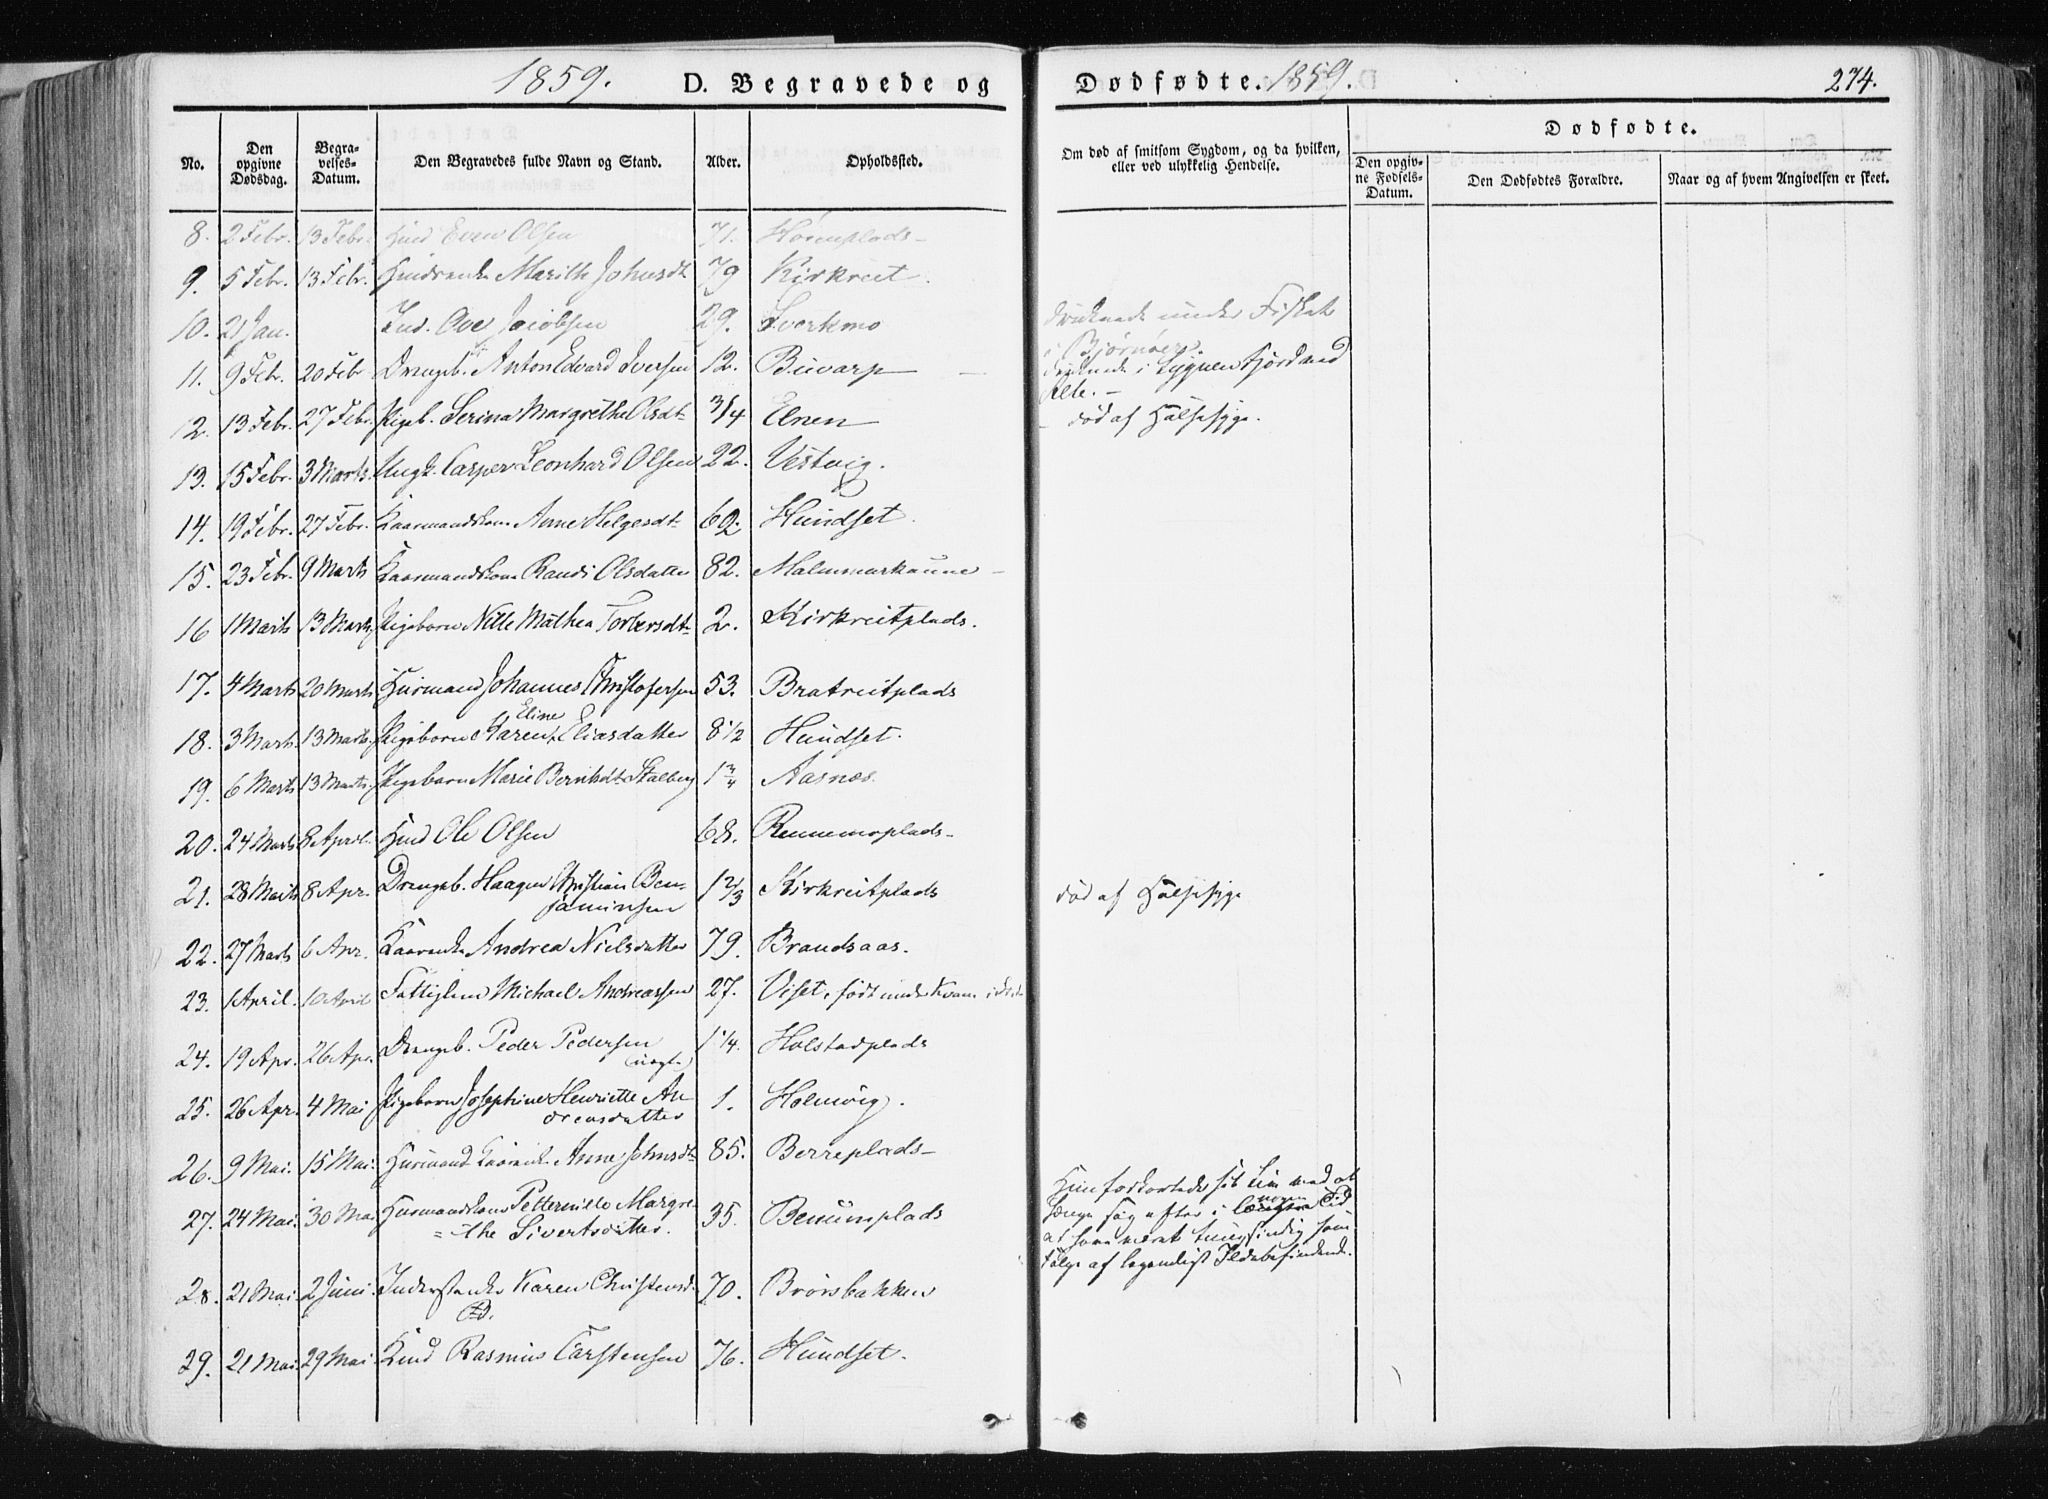 1859. D. Begravede og Dødfødte. 1859. 274.
No. Den opgivne Dødsdag. Begravelses-Datum. Den Begravedes fulde Navn og Stand. Alder. Opholdssted. Om død af smitsom Sygdom, og da hvilken, eller ved ulykkelig Hendelse. Dødfødte.
Den opgivne Fødsels-Datum. Den Dødfødtes Forældre. Naar og af hvem Angivelsen er skeet.
8. 2 Febr. 13 Febr. Even Olsen 71.
9. 5 Febr. 13 Febr. Marith Johnsdt 79 Kirkreit.
10. 21 Jan. Ove Jacobsen 29. druknede under Fisket
i Bjørnøer.
11. 9 Febr. 20 Febr Drengeb. Anton Edvard Iversen 12. Buvarp druknede i Lygnen Fjord ved
12. 13 Febr. 27 Febr. Pigeb. Serina Margrethe Olsdt 3/4 Elnen død af Halssyge.
13. 15 Febr. 3 Marts. Ungk. Casper Leonhard Olsen 22. Vestvig.
14. 19 Febr. 27 Febr. Kaarmandskone Anne Helgesdt 62. Hundset.
15. 23 Febr. 9 Marts Kaarmandskone Randi Olsdatter 82. Malmmarkaune
16 1 Marts 13 Marts Pigebarn Nille Mathea Torbersdt 2. Kirkreitplads.
17. 4 Marts 20 Marts Huusmand Johannes Christofersen 53. Bratreitplads
18. 3 Marts. 13 Marts. Pigebarn Karen Eline Eliasdatter 8 1/2 Hundset.
19. 6 Marts 13 Marts. Pigebarn Marie Bernhdt. Stalberg 1 3/4 Aasnæs.
20. 24 Marts 8 April. Hmd Ole Olsen 68. Rennemoplads
21. 28 Marts 8 Apr. Drengeb. Haagen Christian Ben-
jaminsen 1 2/3 Kirkreitplads død af Halssyge
22. 27 Marts 6 Apr. Kaarenke Andrea Nielsdatter 79. Brandsaas.
23. 1 April. 10 April Fattiglem Michael Andreassen 27. Viset, født under Kvam
24. 19 Apr. 26 Apr. Drengeb. Peder Pedersen
(uægte) 1 1/4. Holstadplads
25. 26 Apr. 4 Mai Pigebarn Josephine Henriette An
dreasdatter 1. Holmvig.
26. 9 Mai. 15 Mai. Huusmand Kaarenke Anne Johnsdt 85. Berreplads
27. 24 Mai. 30 Mai Huusmandskone Petternille Margre-
=the Sivertsdatter. 35. Benumplads
Hun forkortede sit Liv med at
hænge sig efter i længere nogen Tid
at have været tungsindig som
Følge af legemligt Ildebefindende.
28. 21 Mai. 2 Juni. Inderstenke Karen Christensd 70. Brørsbakken
29. 21 Mai. 29 Mai. Kmd Rasmus Carstensen 76. Hundset.